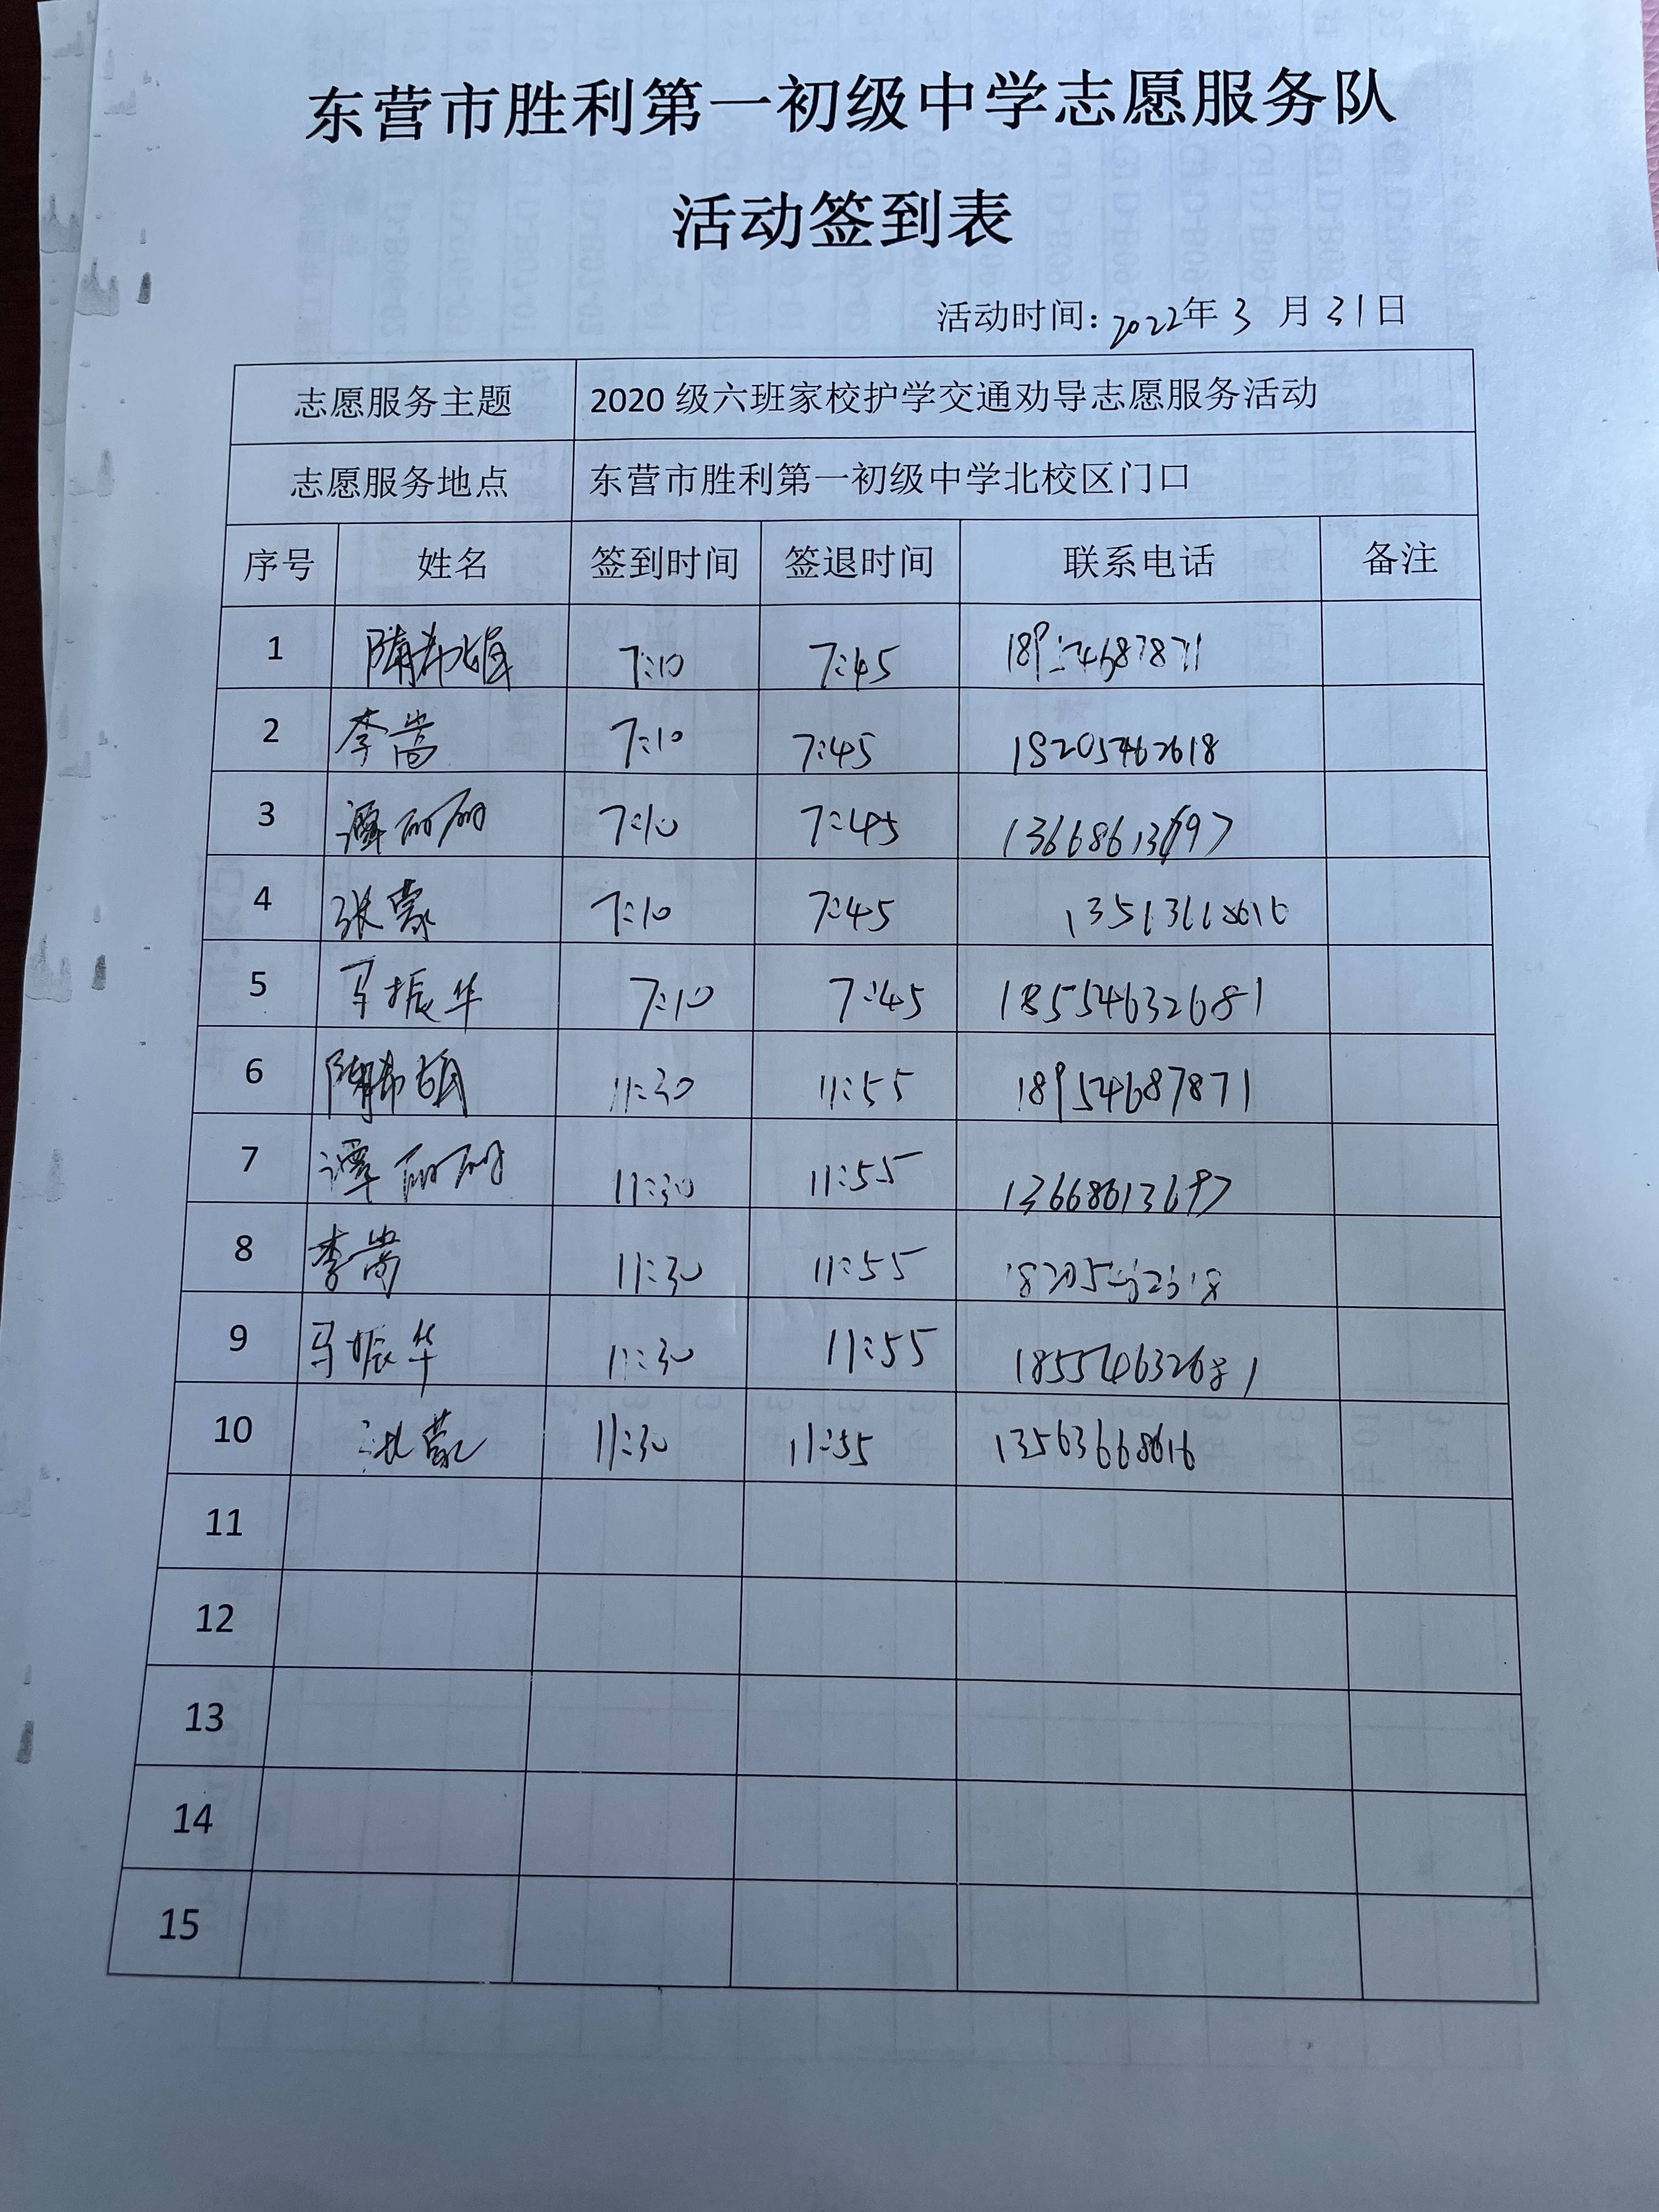 东营市胜利第一初级中学志愿服务队
活动签到表
活动时间：2022年3月31日
志愿服务主题 2020级六班家校护学交通劝导志愿服务活动
志愿服务地点 东营市胜利第一初级中学北校区门口
序号 姓名 签到时间 签退时间 联系电话 备注
1 7:10 7:45
2 李嵩 7:10 7:45 18205462618
3 谭丽丽 7:10 7:45 13668613697
4 张蒙 7:10 7:45
5 马振华 7:10 7:45 18554632681
6 11:30 11:55 18954687871
7 谭丽丽 11:30 11:55 13668613697
8 李嵩 11:30 11:55
9 马振华 11:30 11:55 18554632681
10 11:30 11:55 13563668616
11
12
13
14
15